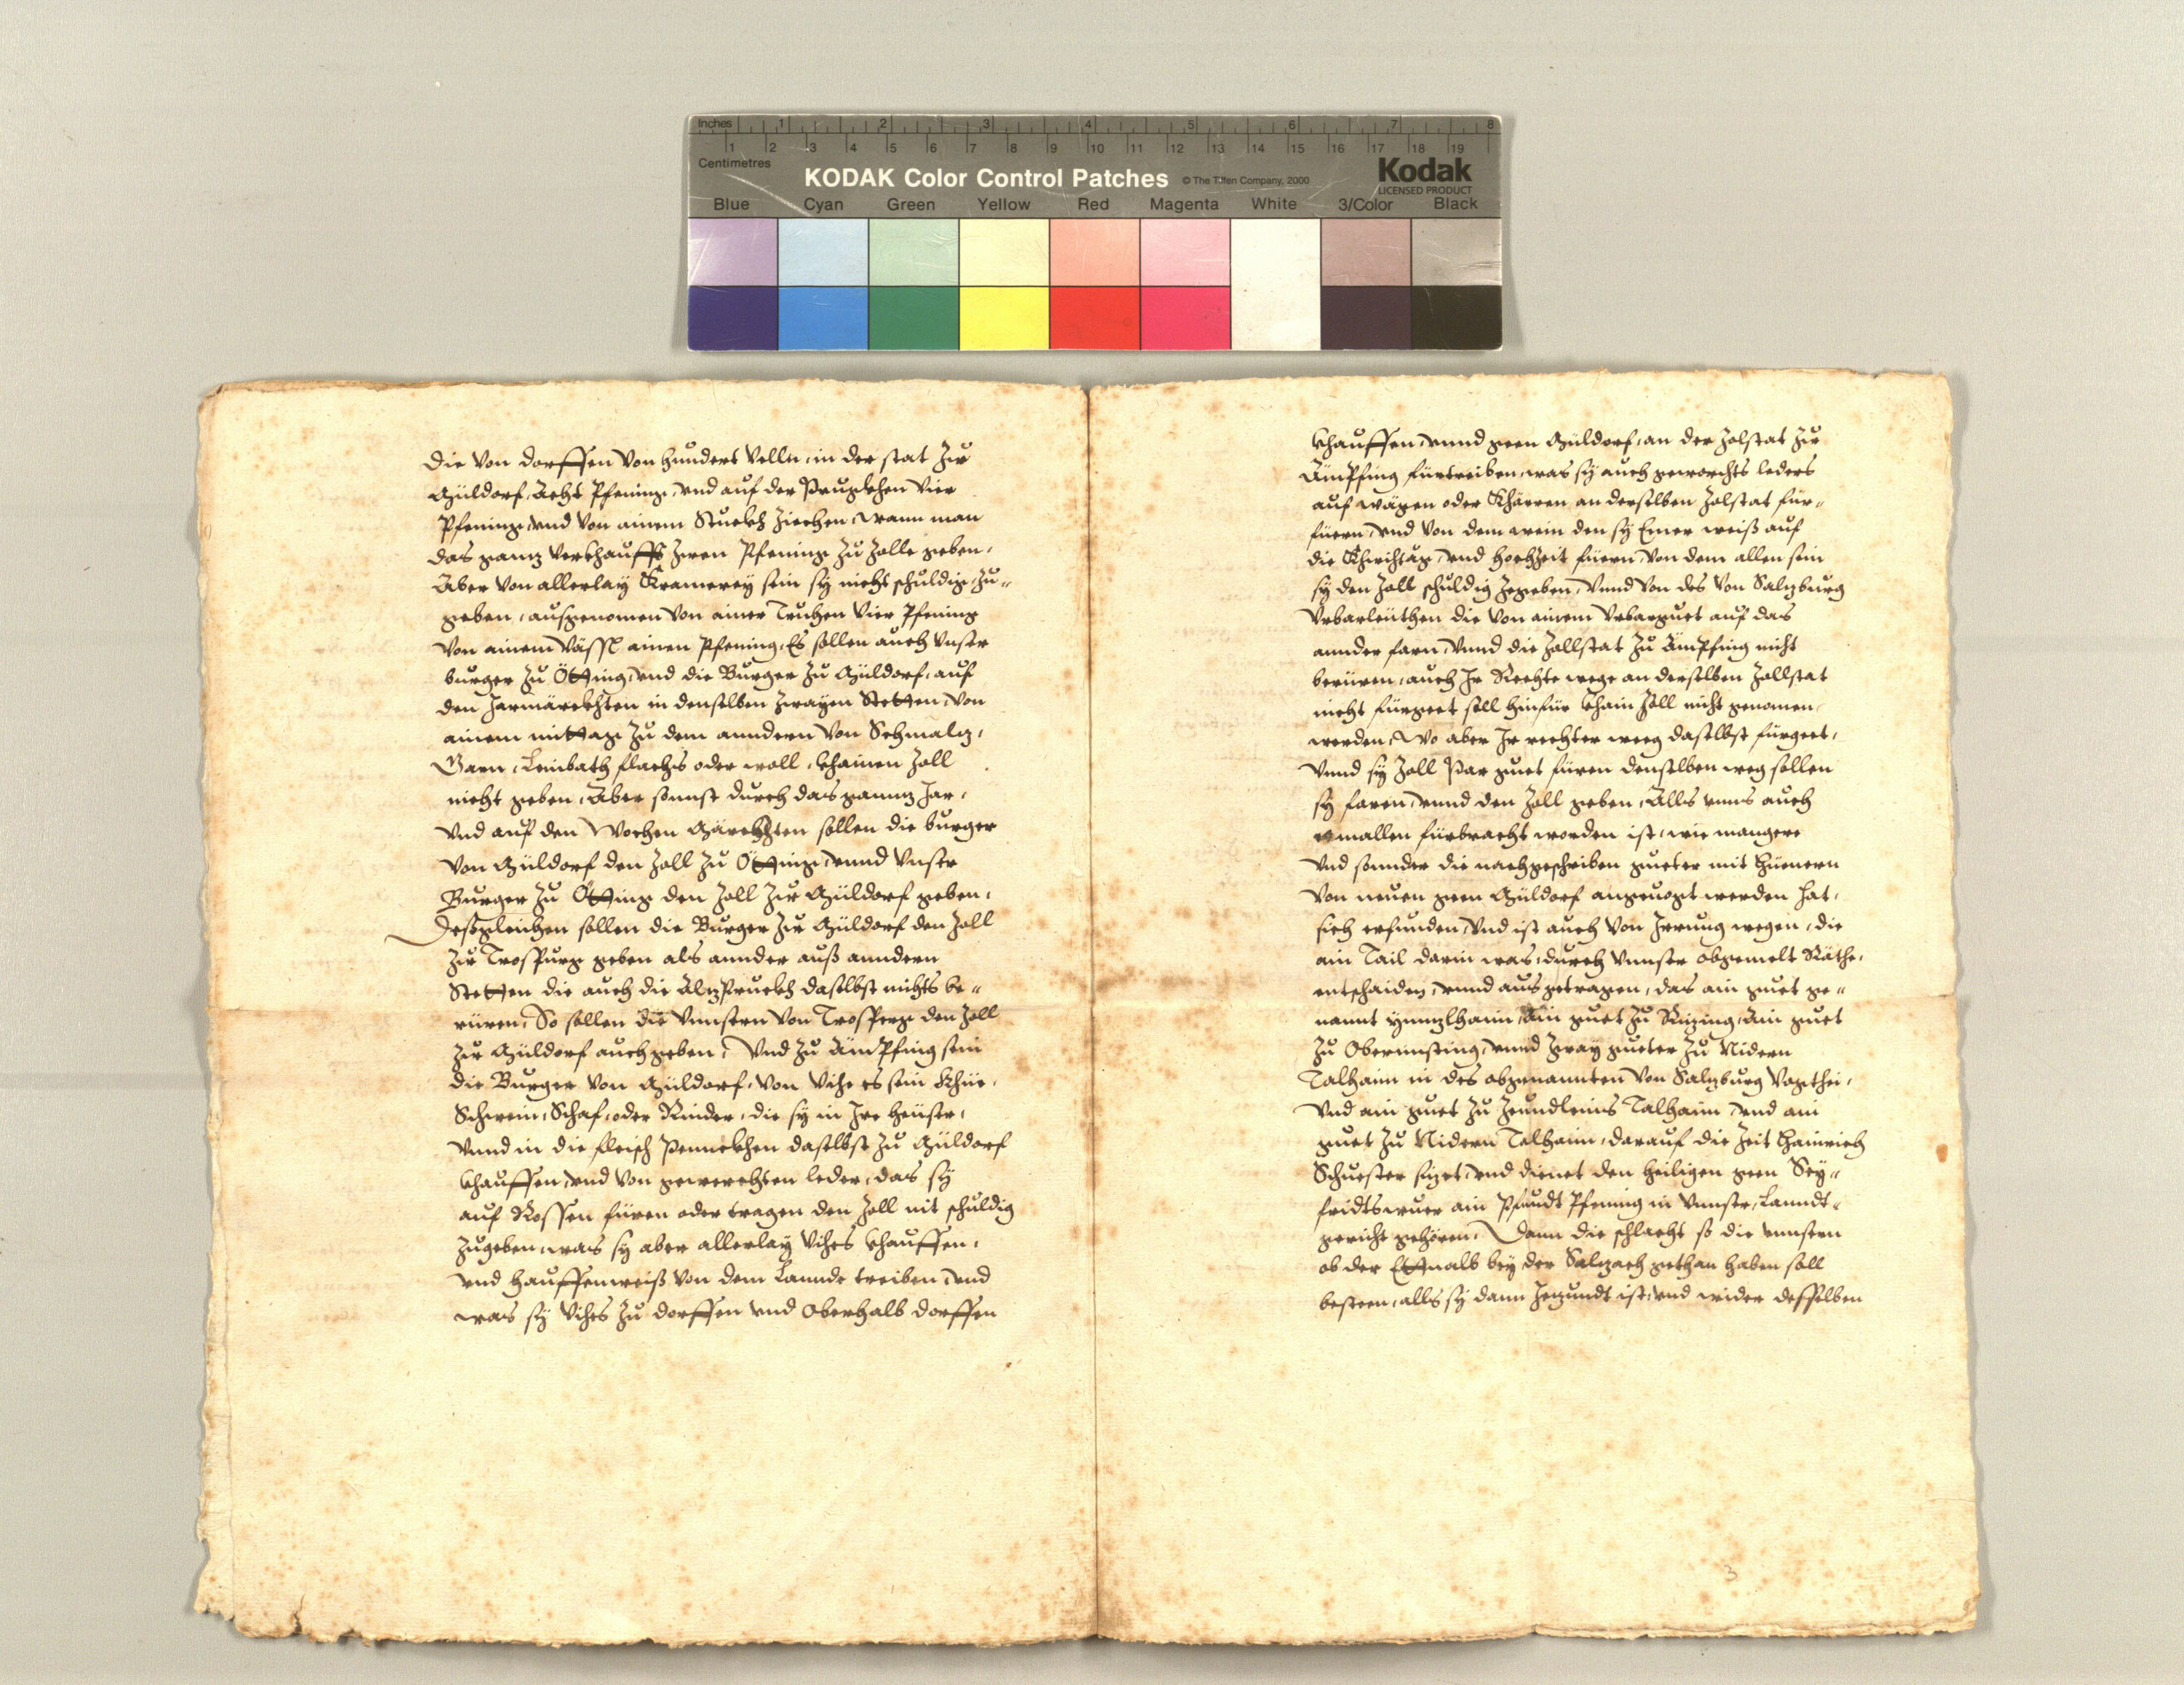 Inches 1 2 3 4 5 6 7 8
1 2 3 4 5 6 7 8 9 10 11 12 13 14 15 16 17 18 19
Centimetres
KODAK Color Control Patches © The Tiffen Company, 2000 Kodak
LICENSED PRODUCT
Blue Cyan Green Yellow Red Magenta White 3/Color Black
die von dorffen von hundert velln, in der stat zu
Müldorf, Acht Pfening, vnd auf der Prugkhen vier
Pfening, vnd von ainem Stuckh ziechen, wann man
das ganz verkhaufft zwen Pfening zu Zolle geben,
Aber von allerlay Kramerey sein sy nicht schuldig zu-
geben, ausgenomen von ainer Truhen vier Pfening
von ainem Vässl ainen Pfening, Es sollen auch vnser
burger zu Ötting, vnd die Burger zu Müldorf, auf
den Jarmärckhten in denselben zwayen Stetten, von
ainem mittag zu dem anndern von Schmalz,
Garn, Leinbath flachs oder woll, khainen Zoll
nicht geben, Aber sonnst durch das gannz Jar,
vnd auf den Wochen Märckhten sollen die burger
von Müldorf den Zoll zu Ötting, vnnd vnser
Burger zu Ötting den Zoll zu Müldorf geben,
Dessgleichen sollen die Burger zu Müldorf den Zoll
zu Trospurg geben als annder auß anndern
Stetten die auch die Alzpruckh daselbst nichts be-
rüren, So sollen die vnnsern von Trosperg den Zoll
zu Müldorf auch geben, Vnd zu Ämpfing sein
die Burger von Müldorf, von Vihe es sein Khüe,
Schwein, Schaf, oder Rinder, die sy in Ire heüser,
vnnd in die fleisch Pennckhen daselbst zu Müldorf
khauffen, vnd von gewerchten leder, das sy
auf Rossen füren oder tragen den Zoll nit schuldig
zugeben, was sy aber allerlay Vihes khauffen,
vnd hauffenweiß von dem Lannde treiben, vnd
was sy Vihes zu dorffen vnd Oberhalb dorffen
khauffen, vnnd geen Müldorf, an der Zolstat zu
Ämpfing fürtreiben, was sy auch geworchts leders
auf wägen oder Khärren an derselben Zolstat für-
füern, vnd von dem wein den sy Emer weiß auf
die Khirchtäg, vnd hochzeit füern, von dem allen sein
sy den Zoll schuldig zegeben, Vnnd von des von Salzburg
Vrbarleüthen die von ainem Vrbarguet auf das
annder farn, vnnd die Zollstat zu Ämpfing nicht
berüren, auch Ir Rechte wege an derselben Zollstat
nicht fürgeet soll hinfür khain Zoll nicht genomen,
werden, Wo aber Ir rechter weeg daselbst fürgeet,
vnnd sy Zoll Par guet füren denselben weg sollen
sy faren, vnnd den Zoll geben, Alls vnns auch
emallen fürbracht worden ist, wie mangere
vnd sonnder die nachgeschriben gueter mit Hüenern
von neuen geen Müldorf angeuogt werden hat,
sich erfunden, vnd ist auch von Irrung wegen, die
ain Tail darin was, durch vnnser obgemelt Räthe,
entschaiden, vnnd aus getragen, das ain guet ge-
nannt ain guet zu Rizing, Ain guet
zu vnnd zway gueter zu Nidern
Talhaim in des obgenannten von Salzburg Vogthei,
vnd ain guet zu Talhaim, vnd ain
guet zu Nidern Talhaim, darauf die Zeit Hainrich
Schuester sizet, vnd dienet den heiligen geen Sey-
fridtswuer ain Pfundt Pfening in vnnser Lanndt-
gericht gehören, Dann die schlacht so die vnnsern
ob der bey der Salzach gethan haben soll
besteen, alls sy dann Jezundt ist, vnd wider desselben
3